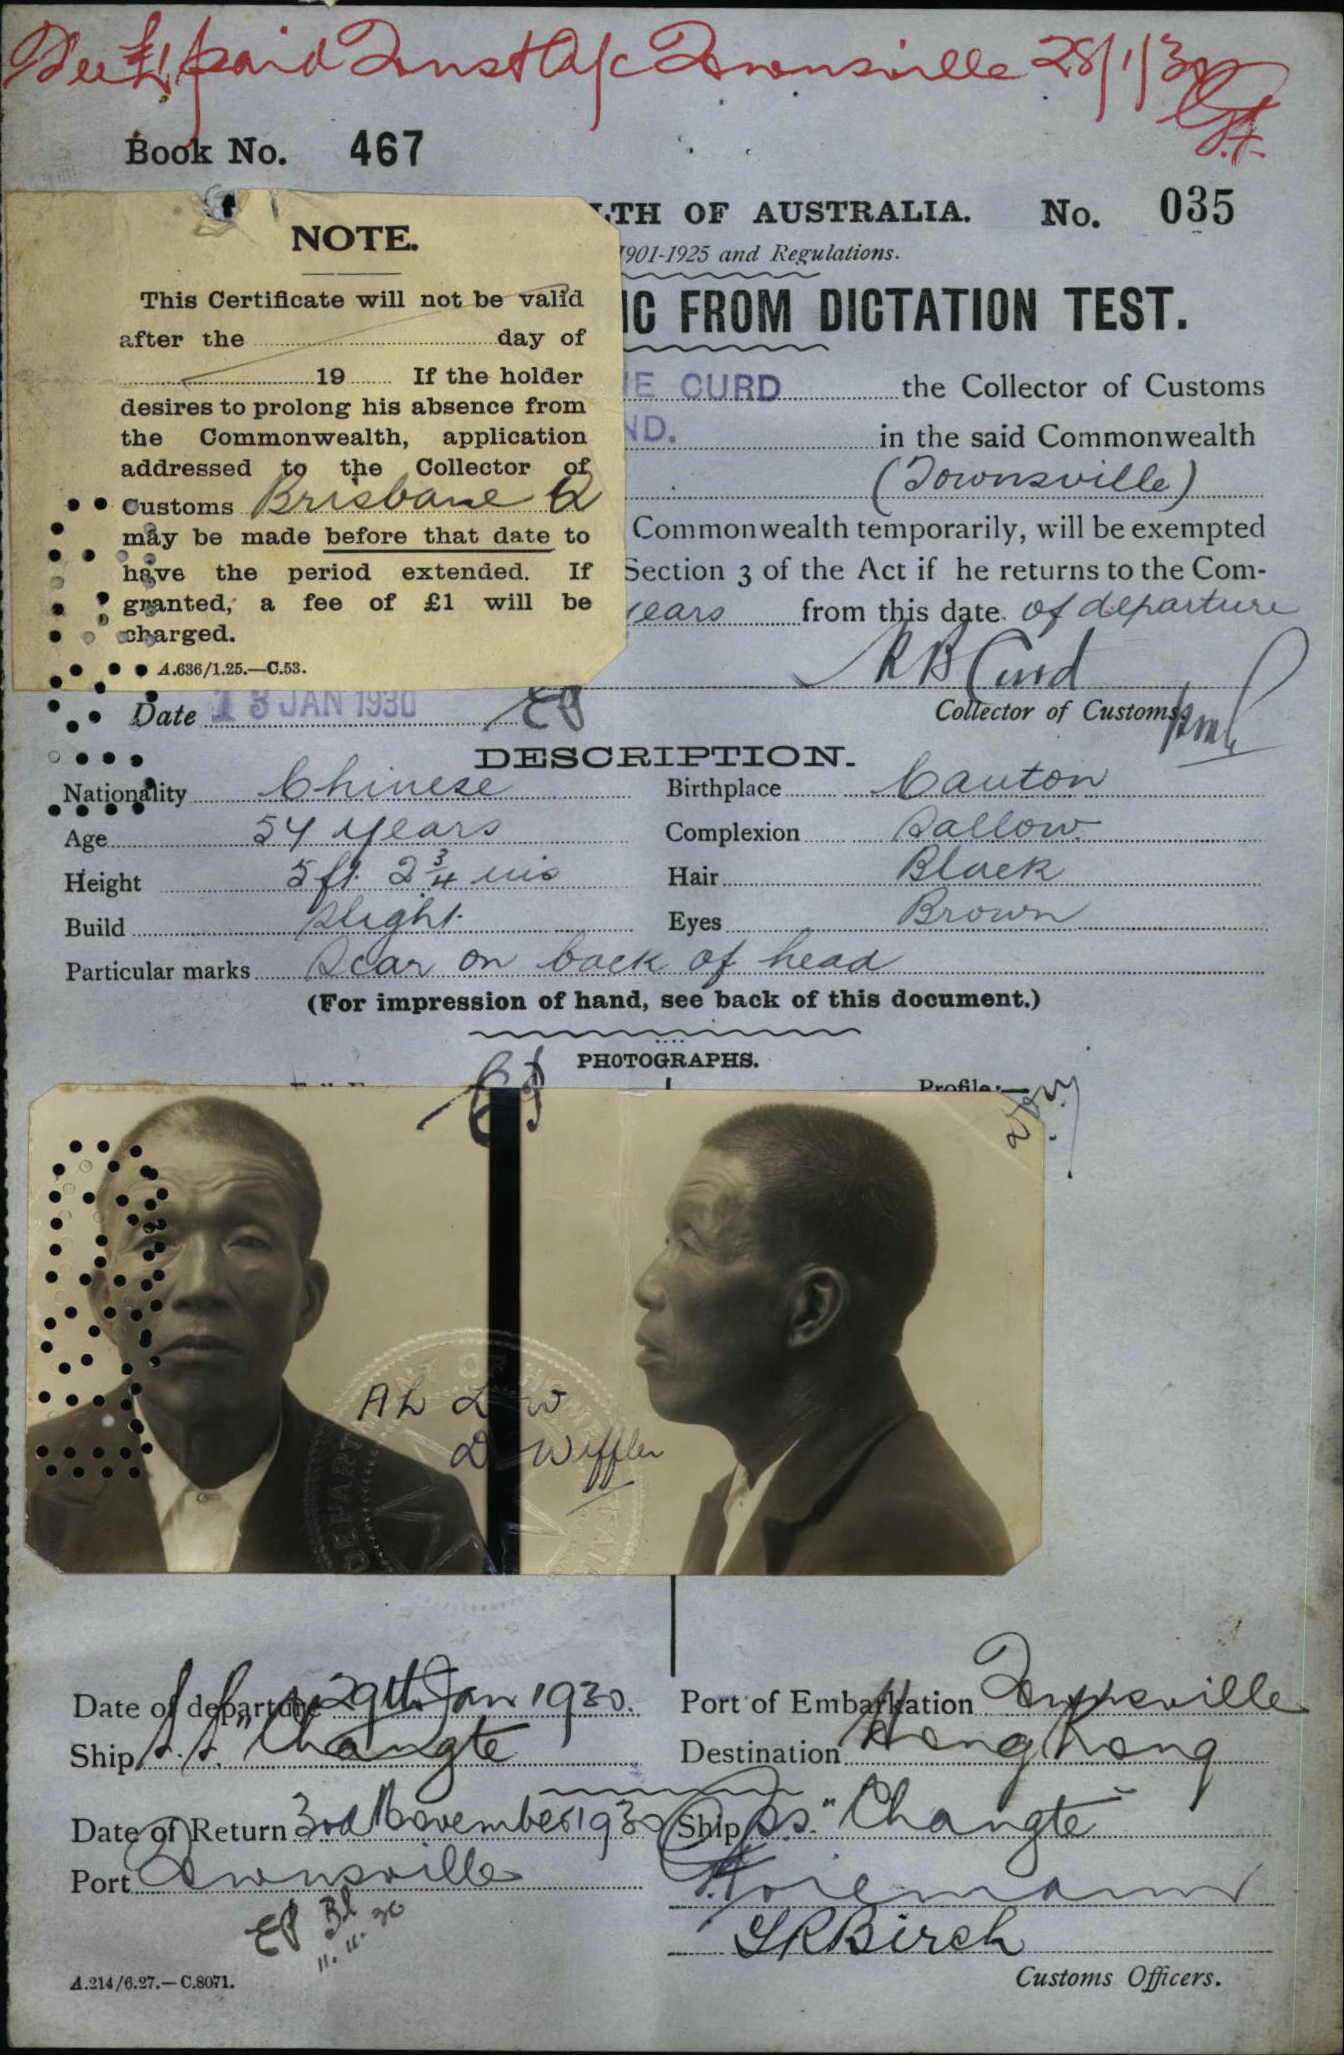 Fee £1 paid Trust A/c Townsville 28/1/30
Book No. 467
LTH OF AUSTRALIA. No. 035
1901-1925 and Regulations.
IC FROM DICTATION TEST.
NOTE.
This Certificate will not be valid
after the day of
19 If the holder
desires to prolong his absence from
the Commonwealth, application
addressed to the Collector of
Customs Brisbane Q
may be made before that date to
have the period extended. If
granted, a fee of £1 will be
charged.
A.636/1.25.—C.53.
NE CURD the Collector of Customs
ND. in the said Commonwealth
(Townsville)
Commonwealth temporarily, will be exempted
Section 3 of the Act if he returns to the Com-
years from this date of departure
R B Curd
Date 13 JAN 1930
Collector of Customs
DESCRIPTION.
Nationality Chinese Birthplace Canton
Age 54 years Complexion Sallow
Height 5 ft. 2 3/4 ins Hair Black
Build Slight Eyes Brown
Particular marks Scar on back of head
(For impression of hand, see back of this document.)
PHOTOGRAPHS.
Profile:—
Ah Low
D Wiffler
Date of departure 29th Jan 1930. Port of Embarkation Townsville
Ship S.S. "Changte Destination Hong Kong
Date of Return 3rd November 1930 Ship S.S. "Changte"
Port Townsville
11.11.30
G R Birch
A.214/6.27.—C.8071.
Customs Officers.